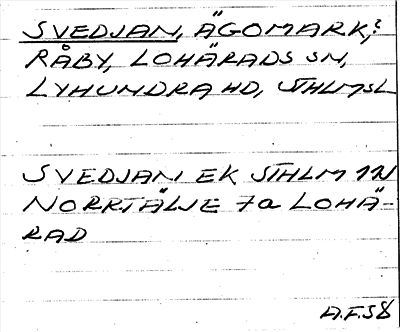 SVEDJAN, ÄGOMARK,?
RÅBY, LOHÄRADS SN,
LYHUNDRA HD, STHLMSL
SVEDJAN EK STHLM 11N
NORRTÄLJE 7a LOHÄ-
RAD
A.F.S8